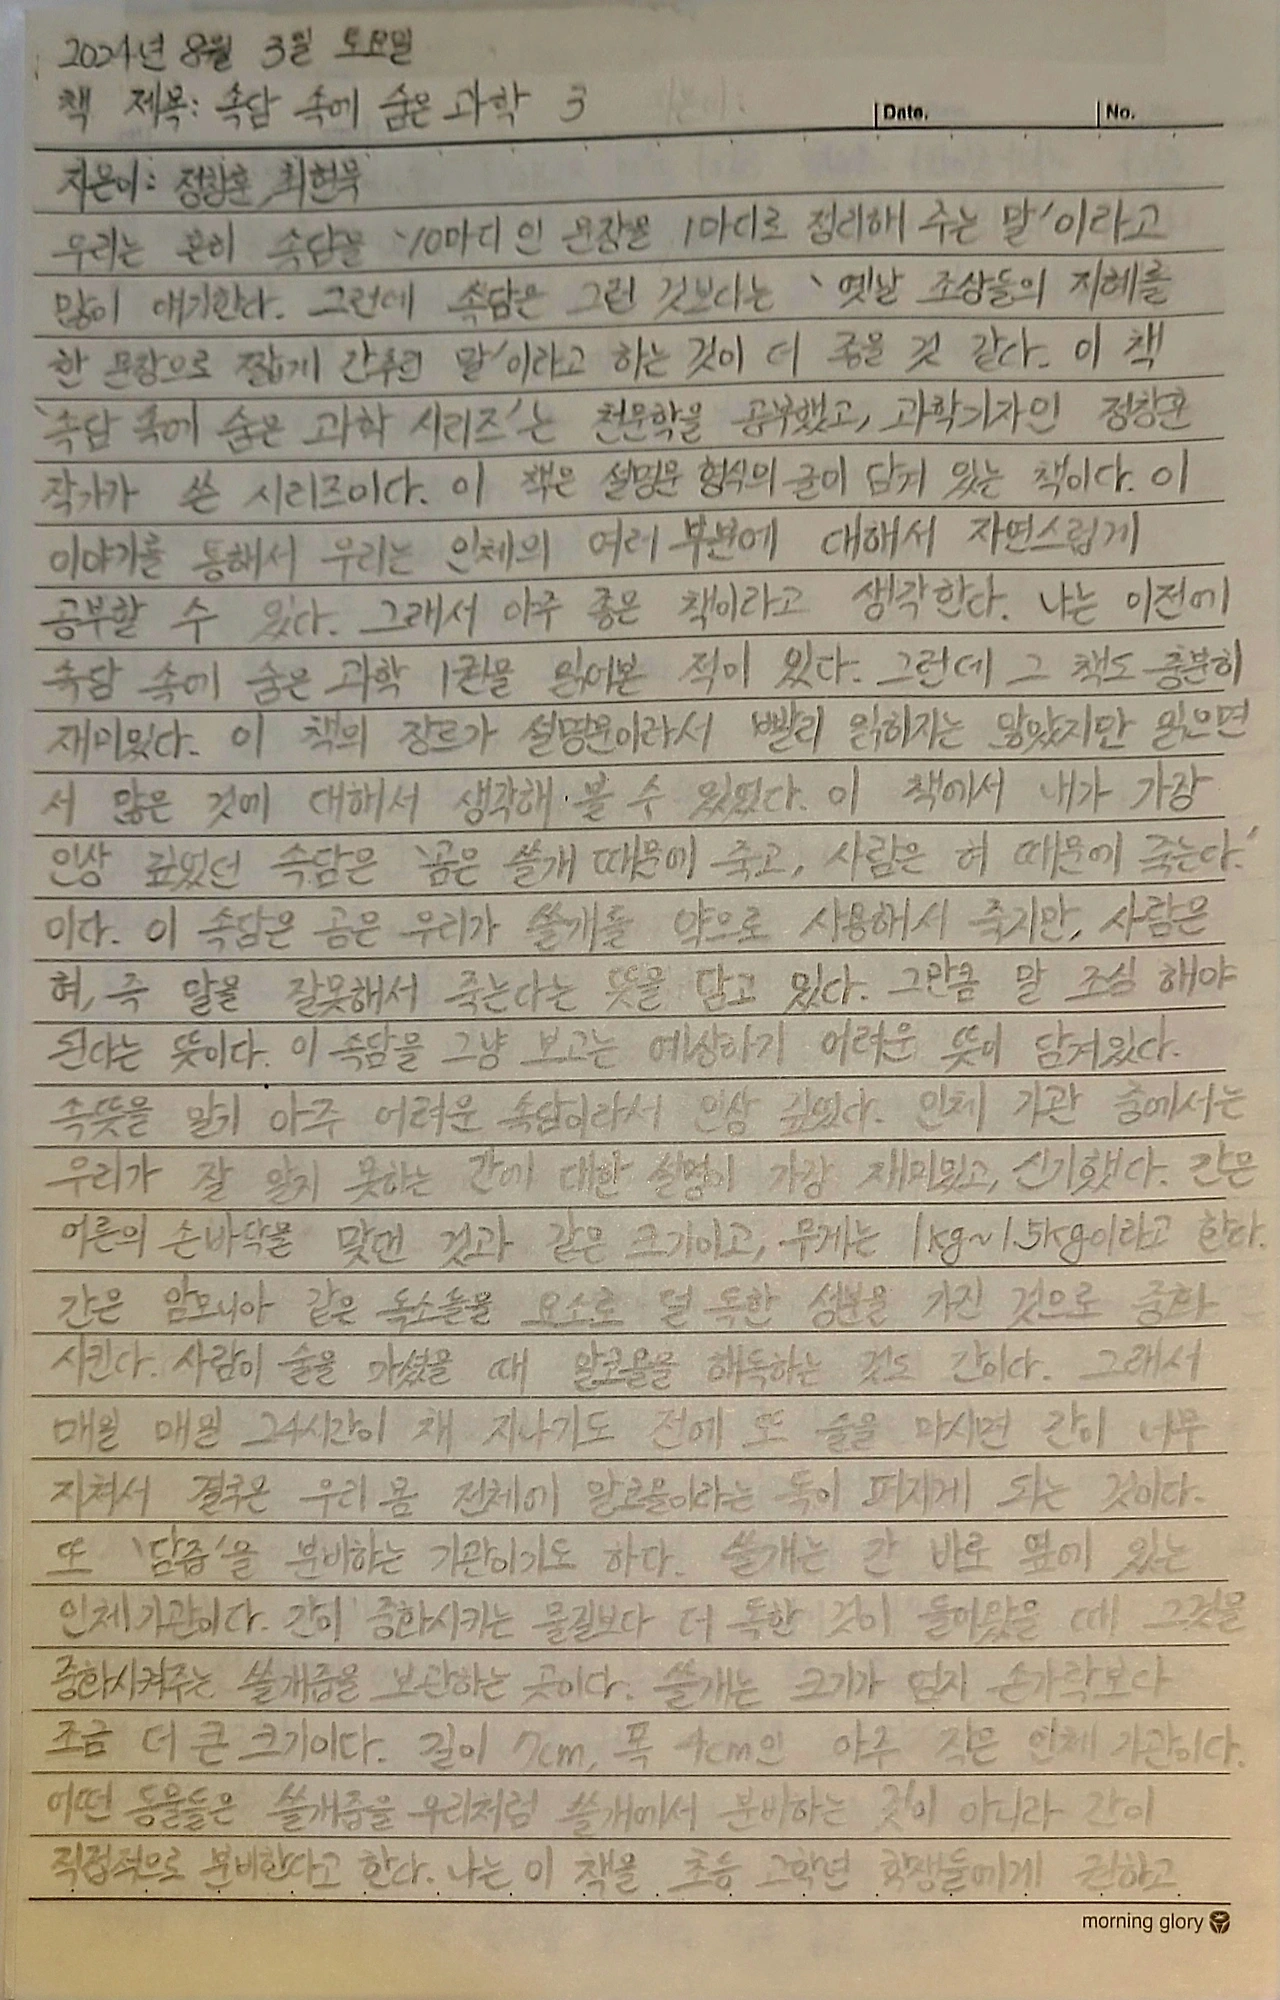 2024년 8월 3일 토요일
책 제목: 속담 속에 숨은 과학 3
Date. No.
지은이: 정창훈, 최현묵
우리는 흔히 속담을 '10마디인 문장을 1마디로 정리해 주는 말'이라고
많이 얘기한다. 그런데 속담은 그런 것보다는 '옛날 조상들의 지혜를
한 문장으로 짧게 간추린 말'이라고 하는 것이 더 좋을 것 같다. 이 책
'속담 속에 숨은 과학 시리즈'는 천문학을 공부했고, 과학기자인 정창훈
작가가 쓴 시리즈이다. 이 책은 설명문 형식의 글이 담겨 있는 책이다. 이
이야기를 통해서 우리는 인체의 여러 부분에 대해서 자연스럽게
공부할 수 있다. 그래서 아주 좋은 책이라고 생각한다. 나는 이전에
속담 속에 숨은 과학 1권을 읽어본 적이 있다. 그런데 그 책도 충분히
재미있다. 이 책의 장르가 설명문이라서 빨리 읽히지는 않았지만 읽으면
서 많은 것에 대해서 생각해 볼 수 있었다. 이 책에서 내가 가장
인상 깊었던 속담은 '곰은 쓸개 때문에 죽고, 사람은 혀 때문에 죽는다.'
이다. 이 속담은 곰은 우리가 쓸개를 약으로 사용해서 죽지만, 사람은
혀, 즉 말을 잘못해서 죽는다는 뜻을 담고 있다. 그만큼 말 조심 해야
된다는 뜻이다. 이 속담을 그냥 보고는 예상하기 어려운 뜻이 담겨있다.
속뜻을 알기 아주 어려운 속담이라서 인상 깊었다. 인체 기관 중에서는
우리가 잘 알지 못하는 간에 대한 설명이 가장 재미있고, 신기했다. 간은
어른의 손바닥을 맞댄 것과 같은 크기이고, 무게는 1kg~1.5kg이라고 한다.
간은 암모니아 같은 독소들을 요소로 덜 독한 성분을 가진 것으로 중화
시킨다. 사람이 술을 마셨을 때 알코올을 해독하는 것도 간이다. 그래서
매일 매일 24시간이 채 지나기도 전에 또 술을 마시면 간이 너무
지쳐서 결국은 우리 몸 전체에 알코올이라는 독이 퍼지게 되는 것이다.
또 '담즙'을 분비하는 기관이기도 하다. 쓸개는 간 바로 옆에 있는
인체기관이다. 간이 중화시키는 물질보다 더 독한 것이 들어왔을 때 그것을
중화시켜주는 쓸개즙을 보관하는 곳이다. 쓸개는 크기가 엄지 손가락보다
조금 더 큰 크기이다. 길이 7cm, 폭 4cm인 아주 작은 인체 기관이다.
어떤 동물들은 쓸개즙을 우리처럼 쓸개에서 분비하는 것이 아니라 간이
직접적으로 분비한다고 한다. 나는 이 책을 초등 고학년 학생들에게 권하고
morning glory